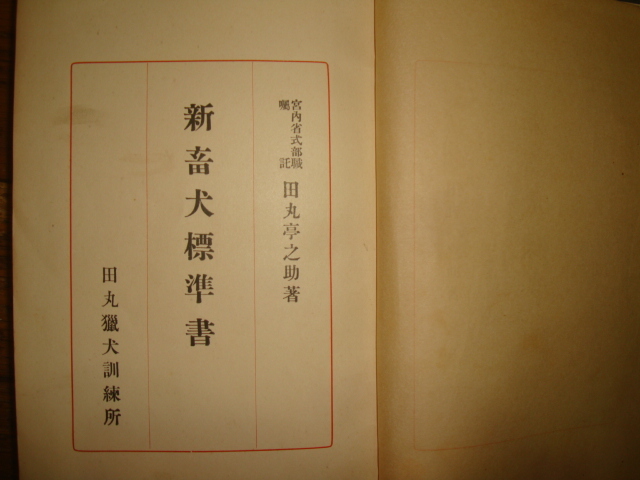 宮内省式部職
囑託
田丸亭之助著
新畜犬標準書
田丸獵犬訓練所